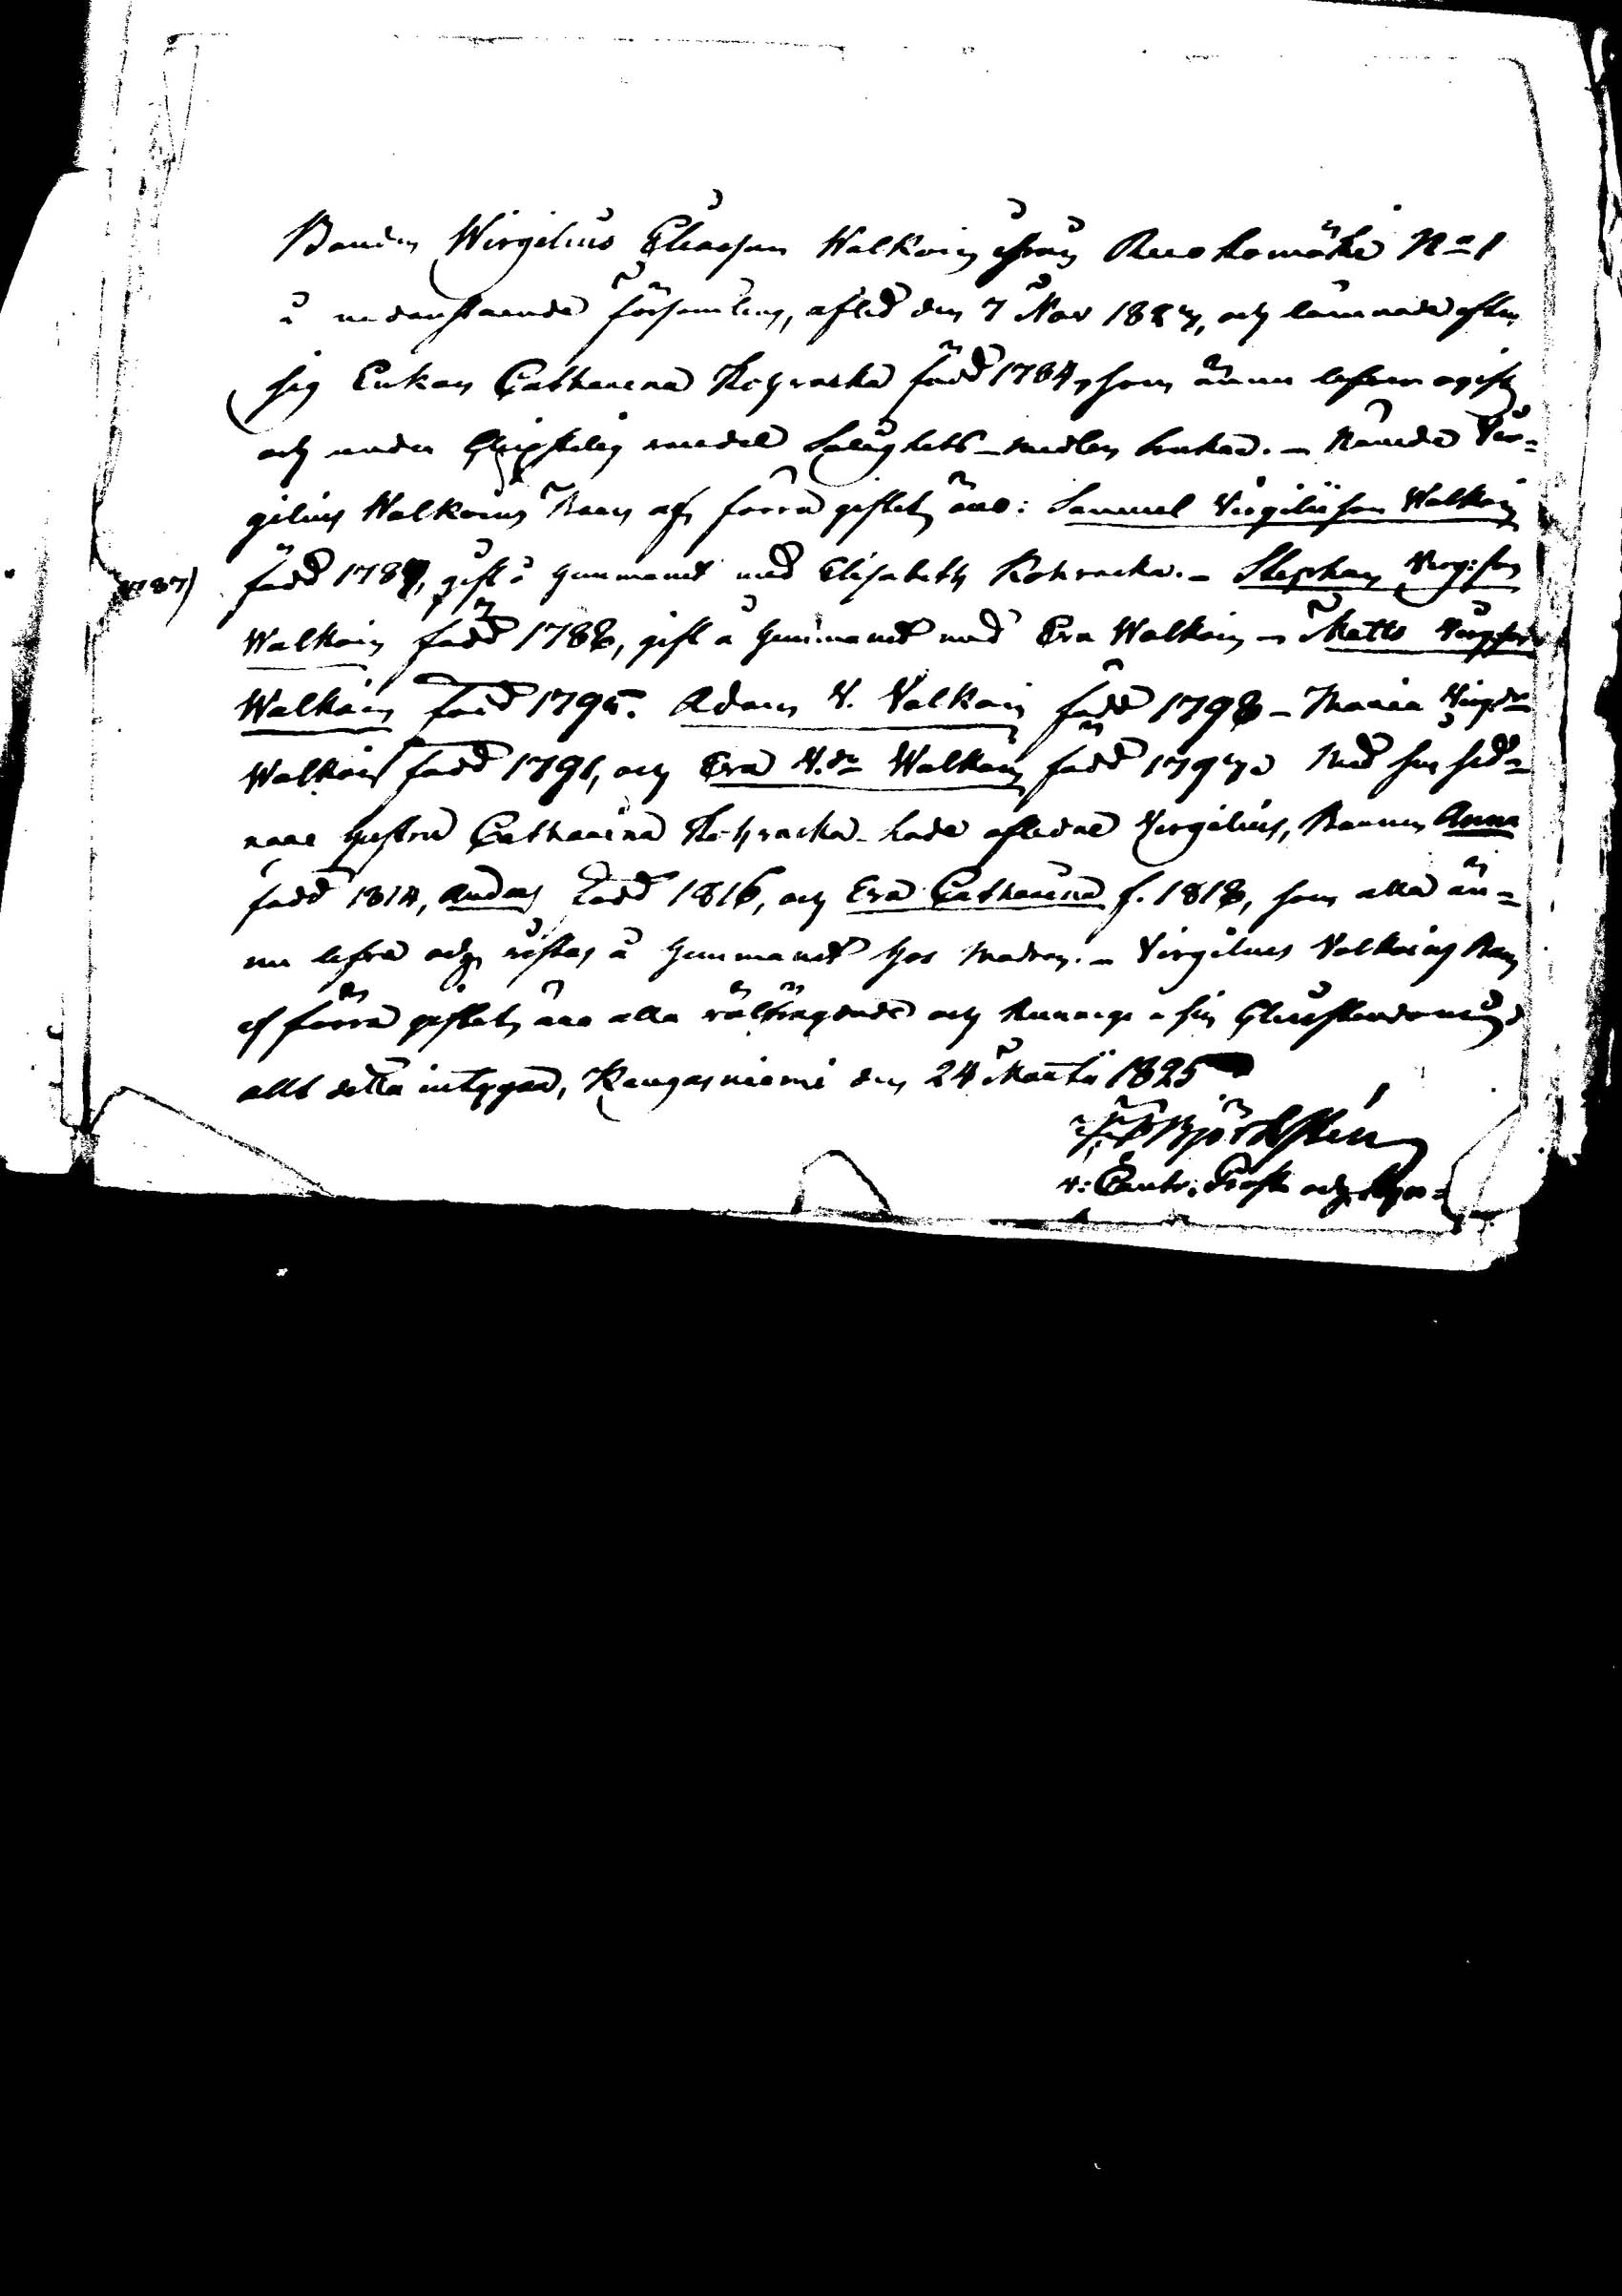 Bonden Wirgilius Eliaeson Walkoin ifrån Ruokomäki No 1
i nedanstående församling, afled den 7 Nov 1827, och lämnade efter
sig Enkan Catharina Kohracka född 1784, som ännu lefver ogift
och under Christelig vandel Salighets-medlen brukar. – Nämde Vir-
gilius Walkoins Barn af förra giftet äro: Samuel Virgiliison Walkoin
1787) född 1787, gift i hemmanet med Elisabeth Kohracka. – Stephan Virg:son
Walkoin född 1788, gift i hemmanet med Eva Walkoin – Matts Virg:son
Walkoin född 1795. Adam V. Valkoin född 1798 – Maria Virg:dr
Walkoin född 1791, och Eva V.dr Walkoin född 1797. Med sin sed-
nare hustru Catharina Kohracka hade aflidne Virgilius, Barnen Anna
född 1814, Andas född 1816, och Eva Catharina f. 1818, som alla än-
nu lefva och vistas i hemmanet hos modren. – Virgilius Valkoins Barn
af förra giftet äro alla välfrägdade och kunnige i sin Christendom;
allt detta intygad, Kangasniemi den 24 Martii 1825
Björksten
v: Contr. Prost och